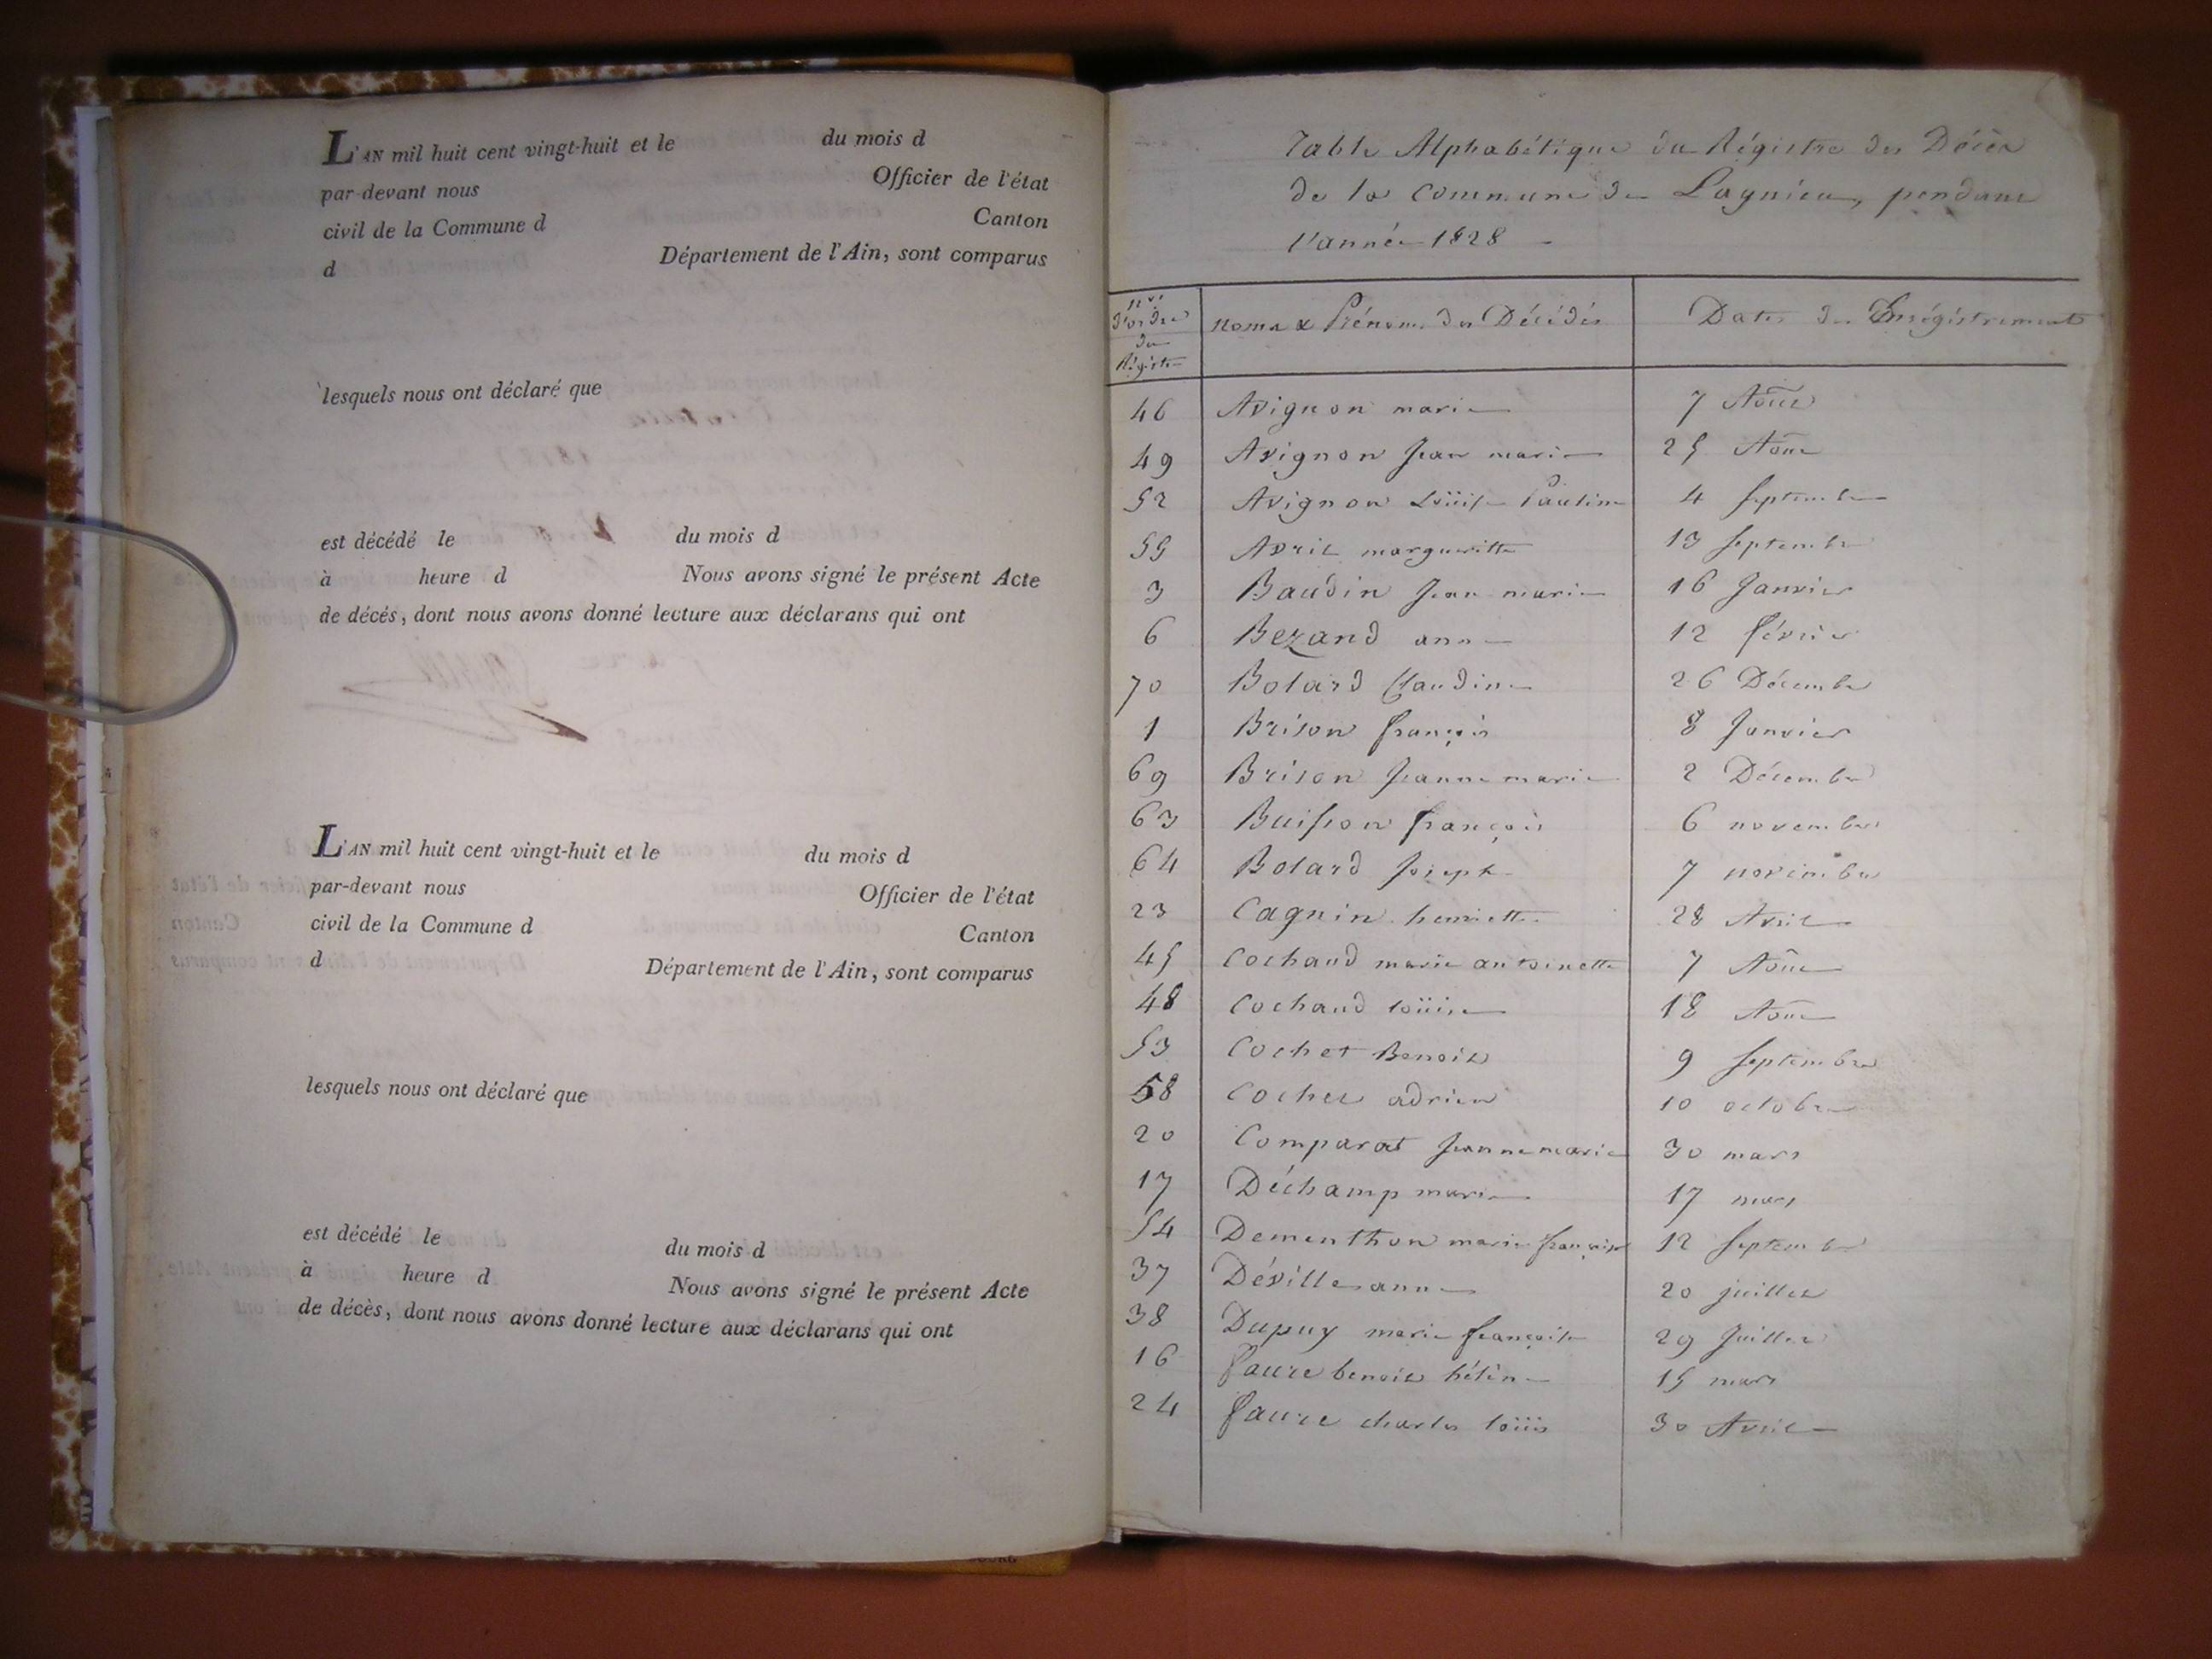 L'AN mil huit cent vingt-huit et le du mois d
par-devant nous Officier de l'état
civil de la Commune d Canton
d Département de l'Ain, sont comparus
lesquels nous ont déclaré que
est décédé le du mois d
à heure d Nous avons signé le présent Acte
de décés, dont nous avons donné lecture aux déclarans qui ont
L'AN mil huit cent vingt-huit et le du mois d
par-devant nous Officier de l'état
civil de la Commune d Canton
d Département de l'Ain, sont comparus
lesquels nous ont déclaré que
est décédé le du mois d
à heure d Nous avons signé le présent Acte
de décès, dont nous avons donné lecture aux déclarans qui ont
Table Alphabétique du Régistre des Décès
de la Commune de Lagnieu, pendant
l'année 1828
nos d'ordre du Régistre noms & Prénoms des Décédés Dates des Enrégistrements
46 Avignon marie 7 Août
49 Avignon Jean marie 25 Août
52 Avignon Loüise Pauline 4 Septembre
55 Avril margueritte 13 Septembre
3 Baudin Jean marie 16 Janvier
6 Bezand anne 12 février
70 Bolard Claudine 26 Décembre
1 Brison françois 8 Janvier
69 Brison Jeanne marie 2 Décembre
63 Buisson françois 6 novembre
64 Bolard Joseph 7 novembre
23 Cagnin henriette 28 Avril
45 Cochand marie antoinette 7 Août
48 Cochand loüise 18 Août
53 Cochet Benoit 9 Septembre
58 Cochet adrien 10 octobre
20 Comparat Jeanne marie 30 mars
17 Déchamp marie 17 mars
54 Dementhon marie françoise 12 Septembre
37 Déville anne 20 juillet
38 Dupuy marie françoise 29 Juillet
16 faure benoit hélène 15 mars
24 faure charles loüis 30 Avril